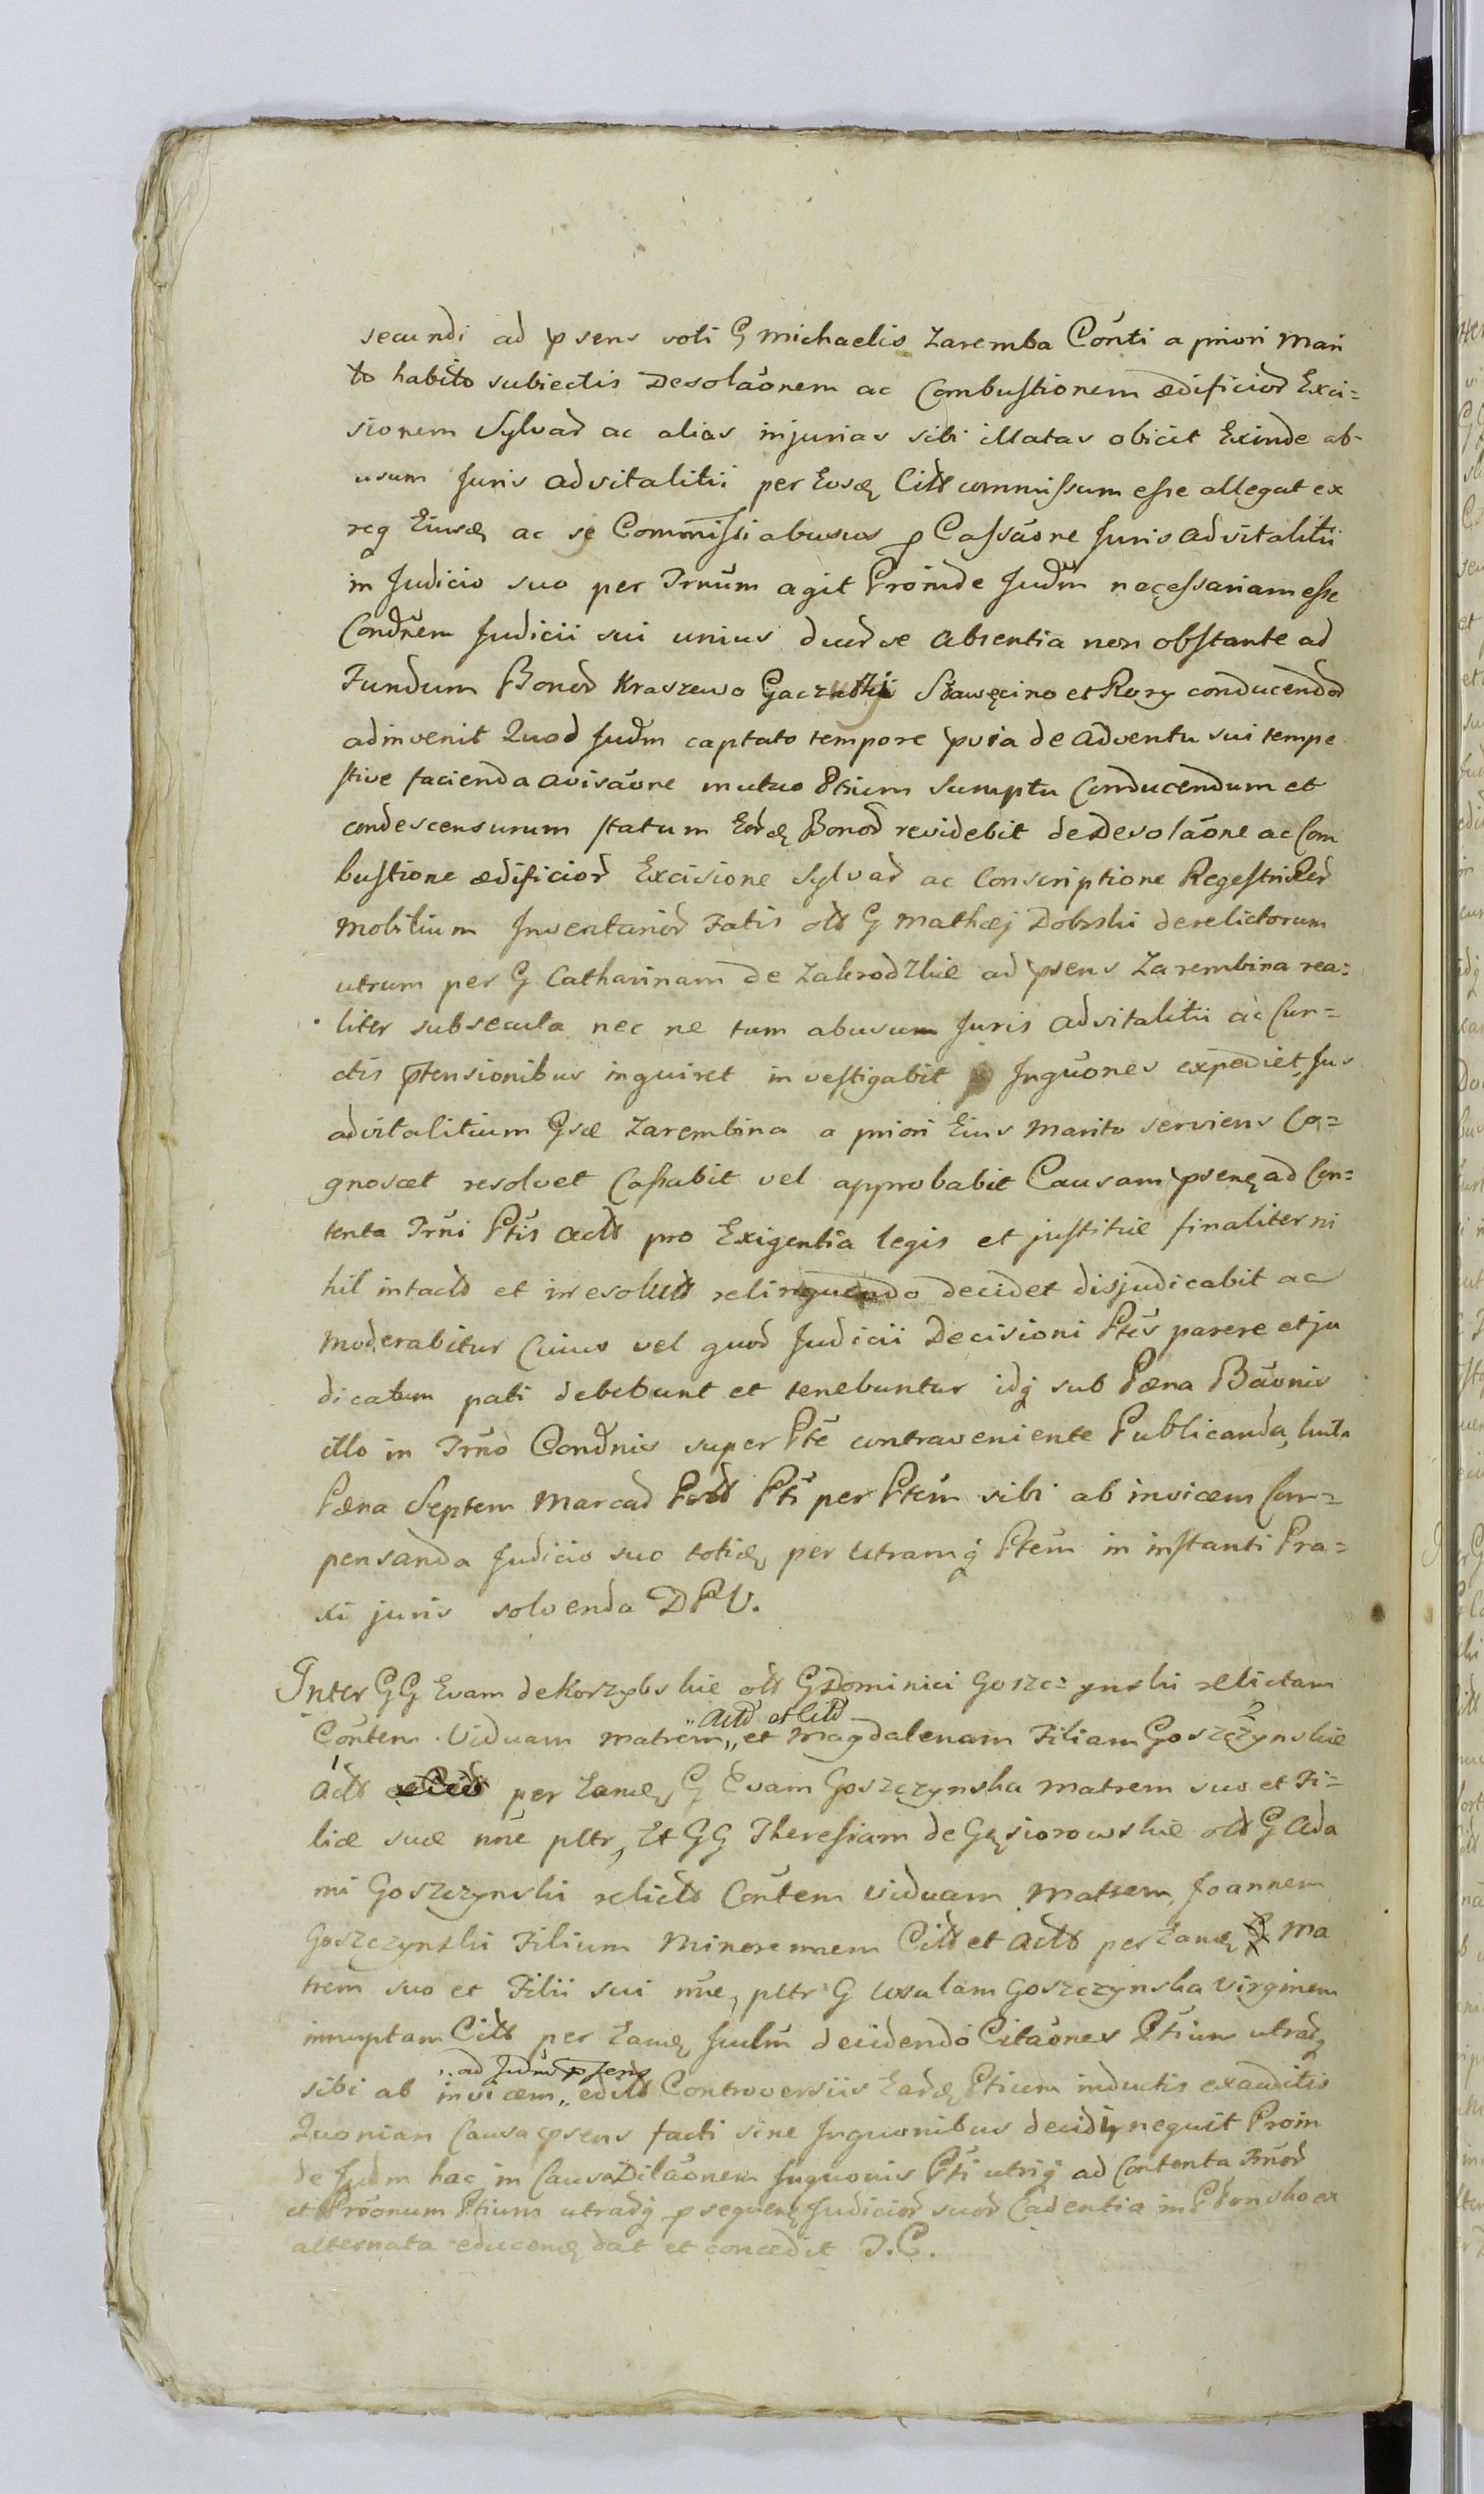 secundi ad psens voti G Michaelis Zaremba Conti a priori Mari
to habito subiectis Desolaonem ac Combustionem ædificior Exci=
sionem Sylvar ac alias injurias sibi illatas obicit Exinde ab-
usum Juris advitalitii per Eosd Citt commissum esse allegat ex
reg Eiusd ac se Commissi abusus p Cassaone Juris advitalitii
in Judicio suo per Trnum agit Proinde Judm necessariam esse
Condnem Judicii sui unius duarve absentia non obstante ad
Fundum Bonor Kraszewo Gaczulki Sławęcino et Rory conducendor
adinvenit Quod Judm captato tempore pvia de adventu sui tempe
stive facienda avisaone mutuo Ptium sumptu Conducendum et
condescensurum statum Eord Bonor revidebit de Desolaone ac Com
bustione ædificior Excisione Sylvar ac Conscriptione Regestri Rer
Mobilium Inventarior Fatis olt G Mathæj Dobrski derelictorum
utrum per G Catharinam de Zakrodzkie ad psens Zarembina rea=
liter subsecuta nec ne tum abusum Juris advitalitii ac Cun=
ctis ptensionibus inquiret investigabit Inquones expediet, Jus
advitalitium Gsæ Zarembina a priori Eius Marito serviens Co=
gnoscet resolvet Cassabit vel approbabit Causam psentem ad Con=
tenta Trni Ptis Actt pro Exigentia legis et justitiæ finaliter ni
hil intactt et irresolutt relinquendo decidet disjudicabit ac
Moderabitur Cuius vel quor Judicii Decisioni Ptes parere et ju
dicatum pati debebunt et tenebuntur idq sub Pæna Baonis
illo in Trno Condnis super Pte contraveniente Publicanda, luita
Pæna Septem Marcar Pti per Ptem sibi ab invicem Com=
pensanda Judicio suo totid per Utramq Ptem in instanti Pra=
xi juris solvenda DPV.
Inter GG Evam de Korzybskie olt G Dominici Goszczynski relictam
Contem Viduam Matrem ,, Actt et Citt ,, et Magdalenam Filiam Goszczynskie
Actt per Eand G Evam Goszczynska Matrem suo et Fi=
liæ suæ nne pltr, Et GG Theresiam de Gąsiorowskie olt G Ada
mi Goszczynski relictt Contem Viduam Matrem, Joannem
Goszczynski Filium Minorennem Citt et Actt per Eand Ma
trem suo et Filii sui nne, pltr G Ursulam Goszczynska Virginem
innuptam Citt per Eand Judm decidendo Citaones Ptium utrarq
sibi ab invicem ,, ad Judm psens ,, editt Controversiis Eard Ptium inductis exauditis
Quoniam Causa psens facti sine Inquonibus decidi nequit Proin
de Judm hac in Causa Dilaonem Inquonis Pti utriq ad Contenta Trnor
et Proonum Ptium utrarq p sequen Judicior suor Cadentia in Płonsko ex
alternata educend dat et concedit T.C.